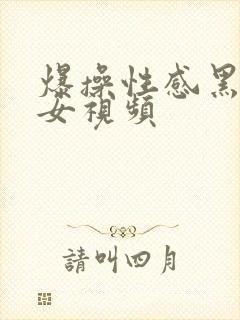 爆操性感黑
女視頻
請叫四月